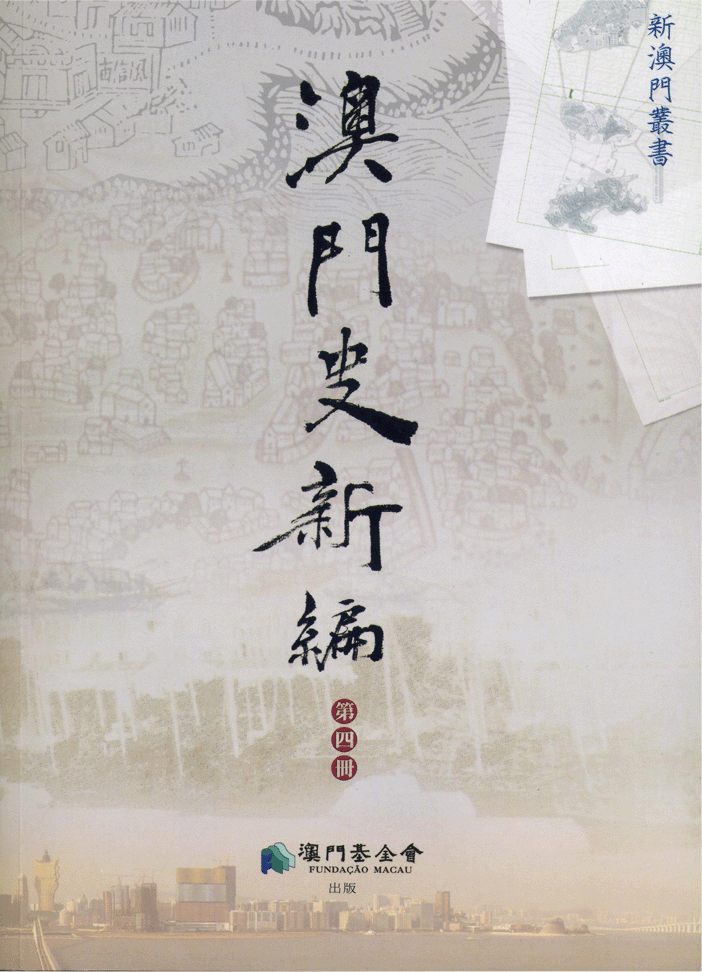 新澳門叢書
澳門史新編
第四冊
澳門基金會
FUNDAÇÃO MACAU
出版